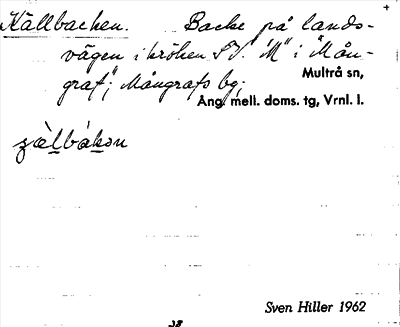 Källbacken. Backe på lands-
vägen i kröken SV. "M" i "Mån-
graf"; Mångrafs by.
Multrå sn,
Ång. mell. doms. tg, Vrnl. l.
Sven Hiller 1962